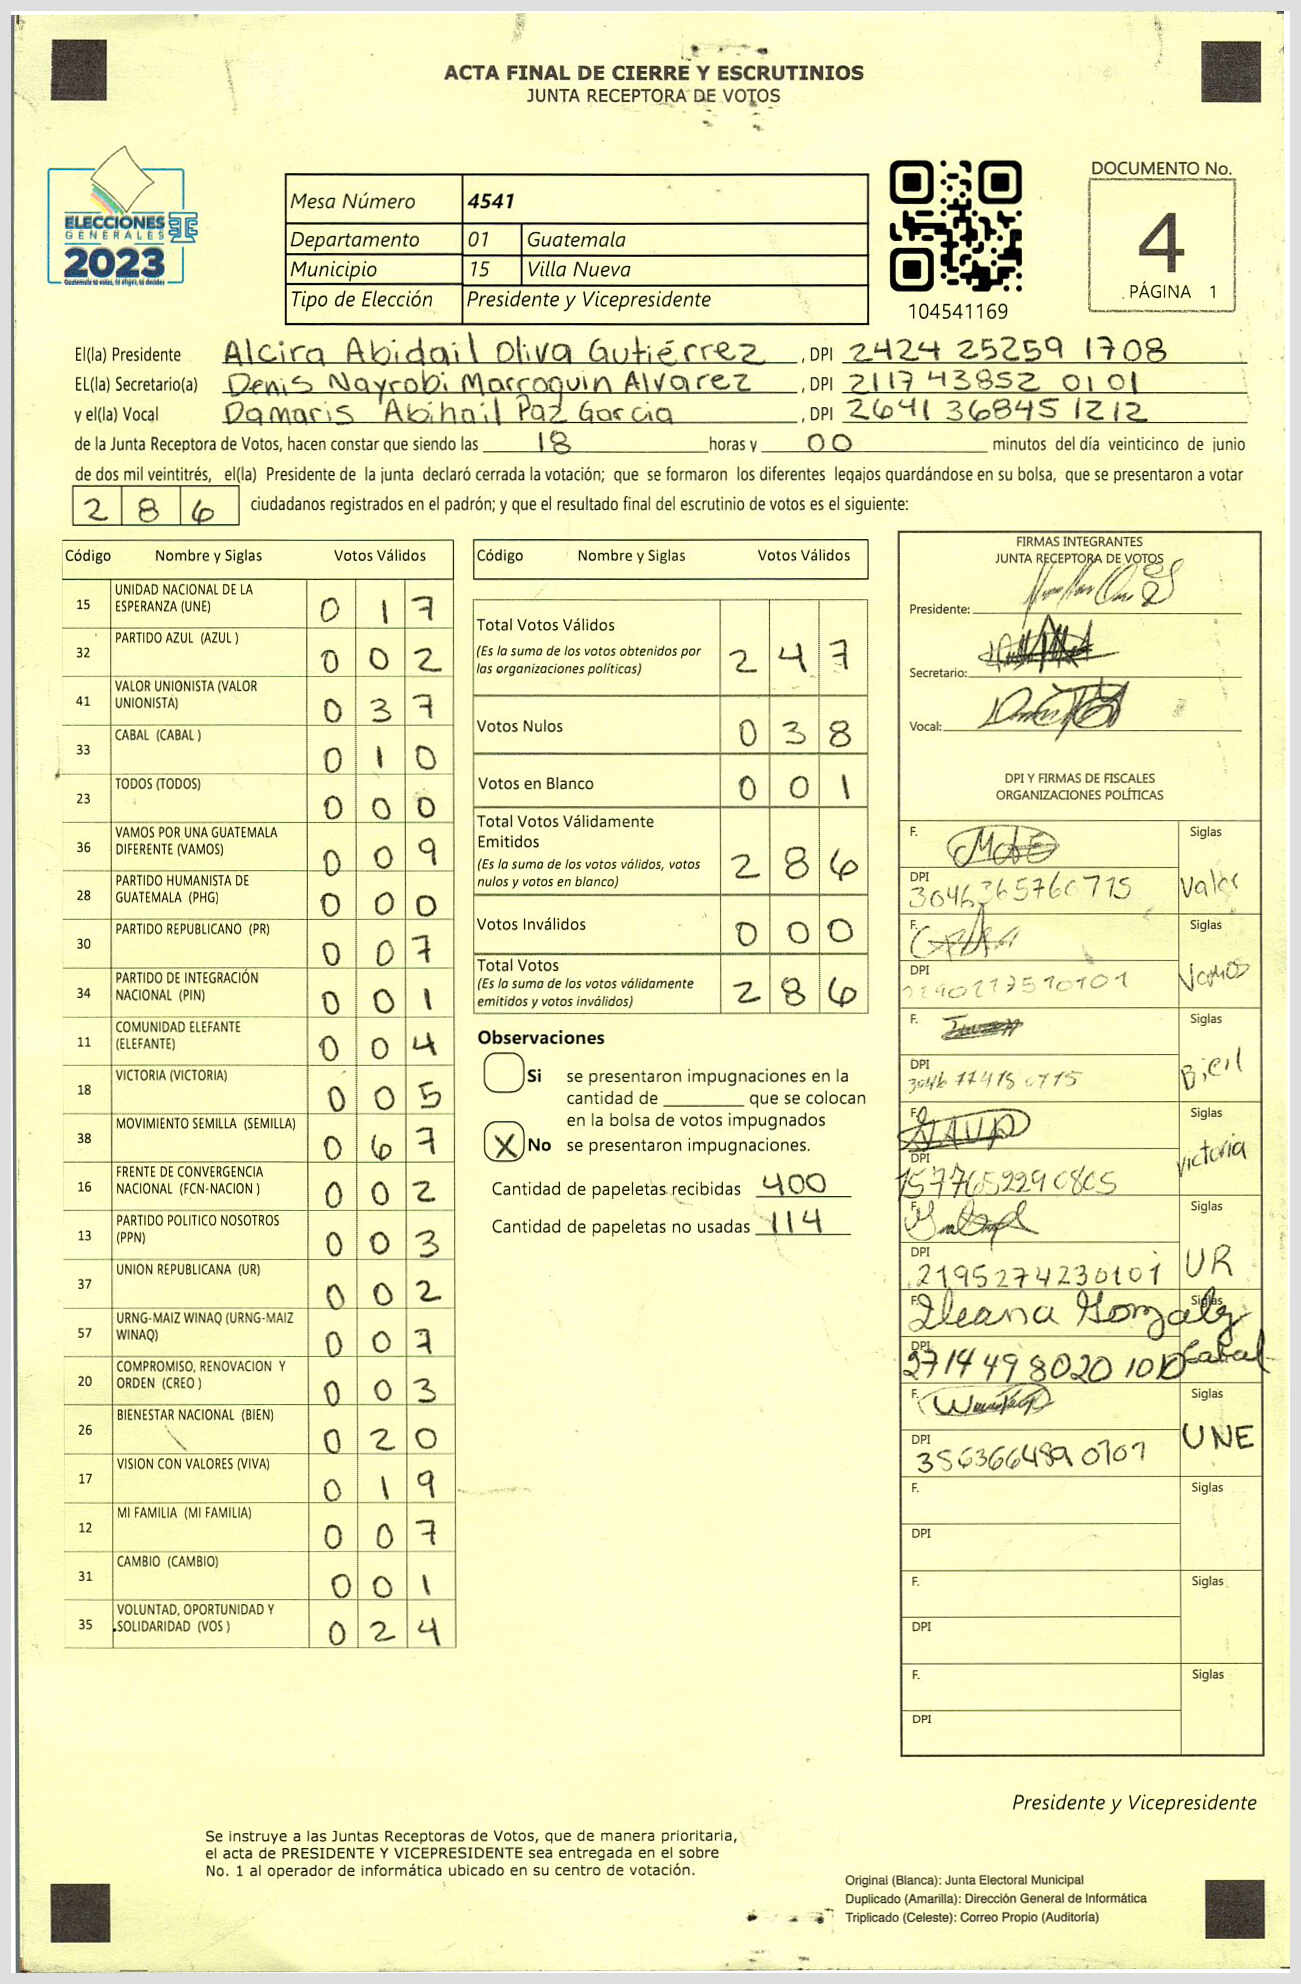 ACTA FINAL DE CIERRE Y ESCRUTINIOS
JUNTA RECEPTORA DE VOTOS
ELECCIONES
GENERALES
2023
Guatemala tú votas, tú eliges, tú decides
TSE
Mesa Número 4541
Departamento 01 Guatemala
Municipio 15 Villa Nueva
Tipo de Elección Presidente y Vicepresidente
104541169
DOCUMENTO No.
4
PÁGINA 1
El(la) Presidente Alcira Abidail Oliva Gutiérrez, DPI 2424 25259 1708
EL(la) Secretario(a) Denis Nayrobi Marroquin Alvarez, DPI 2117 43852 0101
y el(la) Vocal Damaris Abihail Paz Garcia, DPI 2641 36845 1212
de la Junta Receptora de Votos, hacen constar que siendo las 18 horas y 00 minutos del día veinticinco de junio
de dos mil veintitrés, el(la) Presidente de la junta declaró cerrada la votación; que se formaron los diferentes legajos quardándose en su bolsa, que se presentaron a votar
286 ciudadanos registrados en el padrón; y que el resultado final del escrutinio de votos es el siguiente:
Código Nombre y Siglas Votos Válidos
15 UNIDAD NACIONAL DE LA
ESPERANZA (UNE) 017
32 PARTIDO AZUL (AZUL ) 002
41 VALOR UNIONISTA (VALOR
UNIONISTA) 037
33 CABAL (CABAL ) 010
23 TODOS (TODOS) 000
36 VAMOS POR UNA GUATEMALA
DIFERENTE (VAMOS) 009
28 PARTIDO HUMANISTA DE
GUATEMALA (PHG) 000
30 PARTIDO REPUBLICANO (PR) 007
34 PARTIDO DE INTEGRACIÓN
NACIONAL (PIN) 001
11 COMUNIDAD ELEFANTE
(ELEFANTE) 004
18 VICTORIA (VICTORIA) 005
38 MOVIMIENTO SEMILLA (SEMILLA) 067
16 FRENTE DE CONVERGENCIA
NACIONAL (FCN-NACION ) 002
13 PARTIDO POLITICO NOSOTROS
(PPN) 003
37 UNION REPUBLICANA (UR) 002
57 URNG-MAIZ WINAQ (URNG-MAIZ
WINAQ) 007
20 COMPROMISO, RENOVACION Y
ORDEN (CREO ) 003
26 BIENESTAR NACIONAL (BIEN) 020
17 VISION CON VALORES (VIVA) 019
12 MI FAMILIA (MI FAMILIA) 007
31 CAMBIO (CAMBIO) 001
35 VOLUNTAD, OPORTUNIDAD Y
SOLIDARIDAD (VOS ) 024
Código Nombre y Siglas Votos Válidos
Total Votos Válidos
(Es la suma de los votos obtenidos por
las organizaciones políticas) 247
Votos Nulos 038
Votos en Blanco 001
Total Votos Válidamente
Emitidos
(Es la suma de los votos válidos, votos
nulos y votos en blanco) 286
Votos Inválidos 000
Total Votos
(Es la suma de los votos válidamente
emitidos y votos inválidos) 286
Observaciones
Si se presentaron impugnaciones en la
cantidad de ________ que se colocan
en la bolsa de votos impugnados
X No se presentaron impugnaciones.
Cantidad de papeletas recibidas 400
Cantidad de papeletas no usadas 114
FIRMAS INTEGRANTES
JUNTA RECEPTORA DE VOTOS
Presidente:
Secretario:
Vocal:
DPI Y FIRMAS DE FISCALES
ORGANIZACIONES POLÍTICAS
F. Siglas
DPI 3046365760715 Valor
F. Siglas
DPI Vamos
F. Siglas
DPI Bien
F. Siglas
DPI 1577652290805 Victoria
F. Siglas
DPI 2195274230101 UR
F. Ileana Gonzalez Siglas
DPI 2714498020101 Cabal
F. Siglas
DPI UNE
F. Siglas
DPI
F. Siglas
DPI
F. Siglas
DPI
Presidente y Vicepresidente
Se instruye a las Juntas Receptoras de Votos, que de manera prioritaria,
el acta de PRESIDENTE Y VICEPRESIDENTE sea entregada en el sobre
No. 1 al operador de informática ubicado en su centro de votación.
Original (Blanca): Junta Electoral Municipal
Duplicado (Amarilla): Dirección General de Informática
Triplicado (Celeste): Correo Propio (Auditoría)